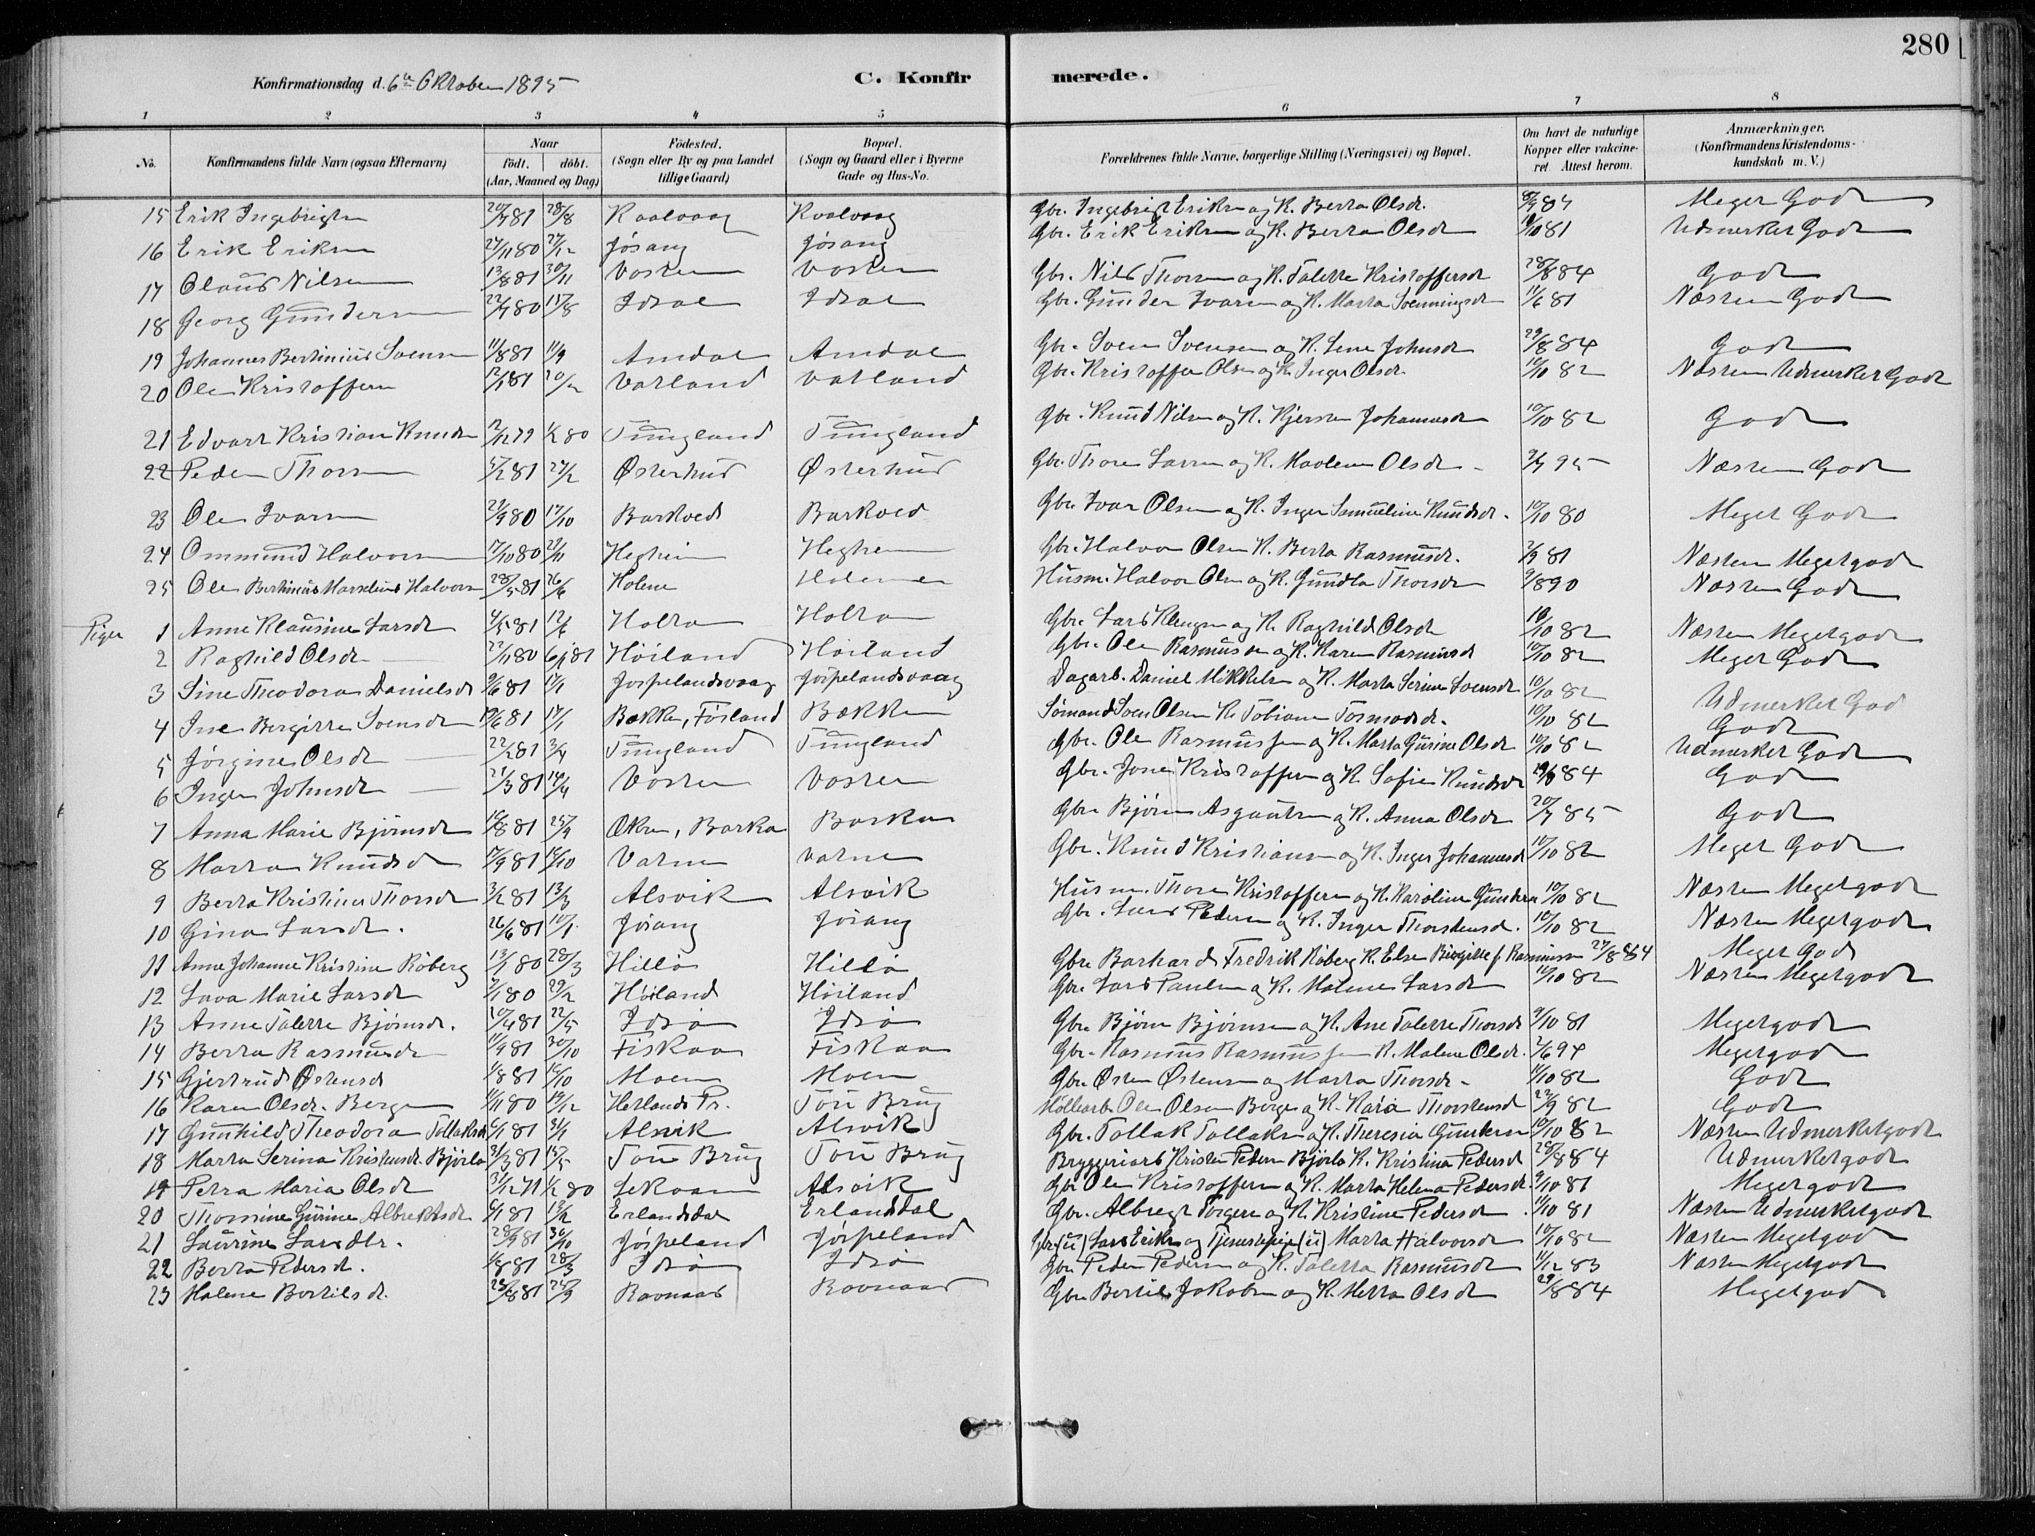 280
Konfirmationsdag d. 6te Oktober 1895
C. Konfirmerede.
1 2 3 4 5 6 7 8
No. Konfirmandens fulde Navn (ogsaa Efternavn) Naar født. døbt. (Aar, Maaned og Dag) Fødested. (Sogn eller By og paa Landet tillige Gaard) Bopæl. (Sogn og Gaard eller i Byerne Gade og Hus-No. Forældrenes fulde Navne, borgerlige Stilling (Næringsvei) og Bopæl. Om havt de naturlige Kopper eller vakcineret. Attest herom. Anmærkninger. (Konfirmandens Kristendomskundskab m. V.)
15 Erik Ingebrigtsn 20/7 81 28/8 Kvalvaag Kvalvaag Gbr. Ingebrigt Eriksn og K. Berta Olsdr. Meget Godt
16 Erik Eriksn 27/11 80 27/12 Jøsang Jøsang Gbr. Erik Eriksn og K. Berta Olsdr 81 Udmerket Godt
17 Olaus Nilsen 13/8 81 30/11 Voster Voster Gbr. Nils Thorsn og K. Talette Kristoffersdr 28/8 84 Godt
18 Georg Gundersn 22/7 80 15/8 Idsal Idsal Gbr. Gunder Ivarsn og K. Marta Svenningsdr 11/6 81 Næsten Godt
19 Johannes Bertinius Svensn 11/8 81 11/9 Amdal Amdal Gbr. Sven Svensen og K. Lene Johnsdr 29/8 84 Godt
20 Ole Kristoffersn 12/1 81 20/2 Vatland Vatland Gbr. Kristoffer Olsn og K. Inger Olsdr. 10/10 82 Næsten Udmerket Godt
21 Edvart Kristian Knudsn 12/12 79 1/2 80 Tungland Tungland Gbr. Knud Nilsn og K. Kjersten Johannesdr 10/10 82 Godt
22 Peder Thorsn 5/2 81 27/2 Østerhus Østerhus Gbr. Thore Larsn og K. Malene Olsdr 95 Næsten Godt
23 Ole Ivarsn 29/9 80 17/10 Barkved Barkved Gbr. Ivar Olsen og K. Inger Samueline Knudsdr. 10/10 80 Meget Godt
24 Ommund Halvorsn 17/10 80 21/11 Heghem Heghem Gbr. Halvor Olsen K. Berta Rasmusdr. 2/9 81 Næsten Megetgodt
25 Ole Bertinius Marselius Halvorsn 28/5 81 26/6 Holene Holene Husm. Halvor Olsn og K. Gundla Thorsdr 9/8 90 Næsten Godt
Piger 1 Anne Klausine Larsdr 4/5 81 12/6 Holta Holta Gbr. Lars Klungsn og K. Raghild Olsdr 10/10 82 Næsten Megetgodt
2 Raghild Olsdr 22/11 80 6/1 81 Høiland Høiland Gbr. Ole Rasmussen og K. Karen Rasmusdr 10/10 82 Meget Godt
3 Sine Theodora Danielsdr 9/6 81 17/7 Jørpelandsvaag Jørpelandsvaag Dagarb. Daniel Mikkelsn og K. Marta Serine Svensdr 10/10 82 Udmerket God
4 Ine Bergitte Svensdr 19/6 81 17/7 Bække, Fosland Bække Sømand Sven Olsen K. Tobiane Tormodsdr. 10/10 82 Godt
5 Jørgine Olsdr 22/2 81 3/4 Tungland Tungland Gbr. Ole Rasmussen og K. Marta Gurine Olsdr 10/10 82 Udmerket Godt
6 Inger Johnsdr 21/3 81 14/4 Voster Voster Gbr. Jone Kristoffersn og K. Sofie Knudsdr 84 Godt
7 Anna Marie Bjørnsdr 19/8 81 25/9 Barka Barka Gbr. Bjørn Asgautsn og K. Anna Olsdr 20/7 85 Godt
8 Marta Knudsdr 17/9 81 16/10 Vatne Vatne Gbr. Knud Kristiansn og K. Inger Johannesdr 10/10 82 Meget Godt
9 Berta Kristine Thorsdr 3/2 81 13/3 Alsvik Alsvik Husm. Thore Kristoffersn og K. Karoline Gundersn 10/10 82 Næsten Megetgodt
10 Gina Larsdr. 26/6 81 Jøsang Jøsang Gbr. Lars Pedersn og K. Inger Thorstensdr. 10/10 82 Næsten Megetgodt
11 Anne Johanne Kristine Røberg 13/1 80 28/3 Hillø Hillø Gbr. Barhard Fredrik Røberg K. Elsn Birgitte f. Rasmussn 27/8 84 Meget God
12 Lava Marie Larsdr 7/1 80 29/2 Høiland Høiland Gbr. Lars Paulsn og K. Malene Larsdr 10/10 82 Næsten Megetgodt
13 Anne Talette Bjørnsdr. 10/4 81 22/5 Idsø Idsø Gbr. Bjørn Bjørnsen og K. Ane Talette Thorsdr 9/10 81 Megetgodt
14 Berta Rasmusdr 11/9 81 30/10 Fiskaa Fiskaa Gbr. Rasmus Rasmussen K. Malene Olsdr. 2/6 94 Megetgodt
15 Gjertrud Østensdr 1/8 81 16/10 Moen Moen Gbr. Østen Østensn og Marta Thorsdr 11/10 82 Godt
16 Karen Olsdr. Berge 11/11 80 19/12 Hetlands Pr. Tou Brug Møllearb. Ole Olsen Berge og K. Karia Thorstensdr 22/9 82 Godt
17 Gunhild Theodora Tollaksdr 6/1 81 31/1 Alsvik Alsvik Gbr. Tollak Tollaksn og K. Theresia Gundersn 10/10 82 Næsten Udmerketgodt
18 Marta Serina Kristensdr. Bjørlo 31/3 81 15/5 Tou Brug Tou Brug Bryggeriarb. Kristen Pedersn Bjørlo K. Kristina Pedersdr 28/8 84 Udmerketgodt
19 Petra Maria Olsdr 31/12 71 1/2 80 Lekvam Alsvik Gbr. Ole Kristoffersn og K. Marta Helena Pedersdr. 9/10 81 Megetgodt
20 Thomine Gurine Albrektsdr 6/1 81 13/2 Erlandsdal Erlandsdal Gbr. Albregt Torgersn og K. Kristine Pedersdr. 11/10 81 Næsten Udmerketgodt
21 Laurine Larsdtr. 29/9 81 30/10 Jørpeland Jørpeland Gbr (u) Lars Eriksn og Tjenestepige (u) Marta Halvorsdr 10/10 82 Næsten Megetgodt
22 Berta Pedersdr. 81 28/3 Idsø Idsø Gbr. Peder Pedersn og K. Taletta Rasmusdr 11/12 83 Næsten Megetgodt
23 Malene Bertilsdr. 28/8 81 25/9 Ravnaas Ravnaas Gbr. Bertil Jakobsn og K. Metta Olsdr 29/8 84 Megetgodt